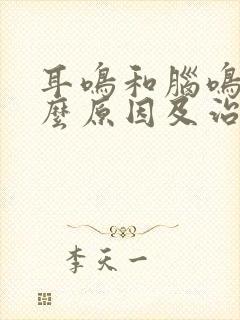 耳鳴和腦鳴
麼原因及治
李天一